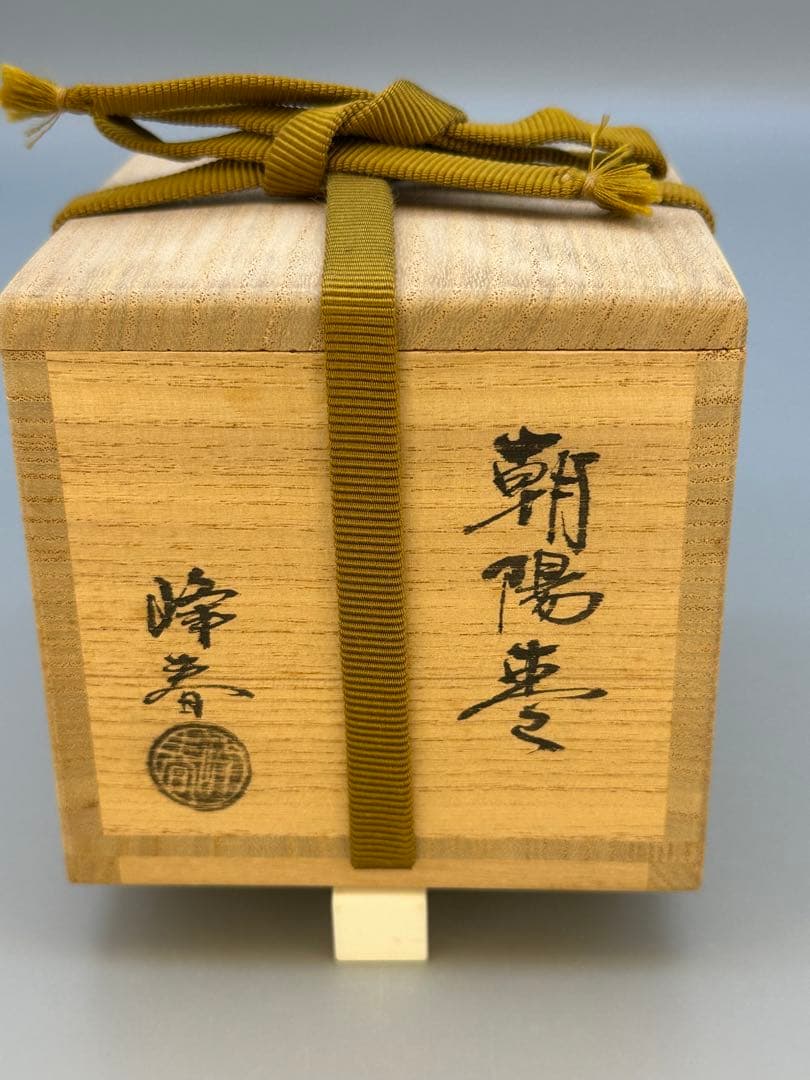 朝陽棗
峰春